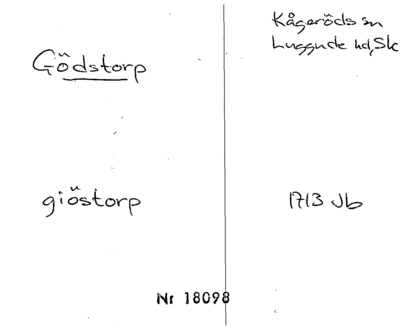 Gödstorp
Kågeröds sn
Luggude hd, Sk
giöstorp
1713 Jb
Nr 18098